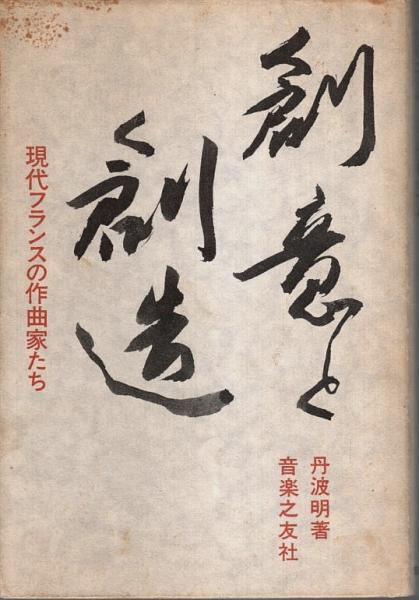 創意と
創造
現代フランスの作曲家たち
丹波明著
音楽之友社